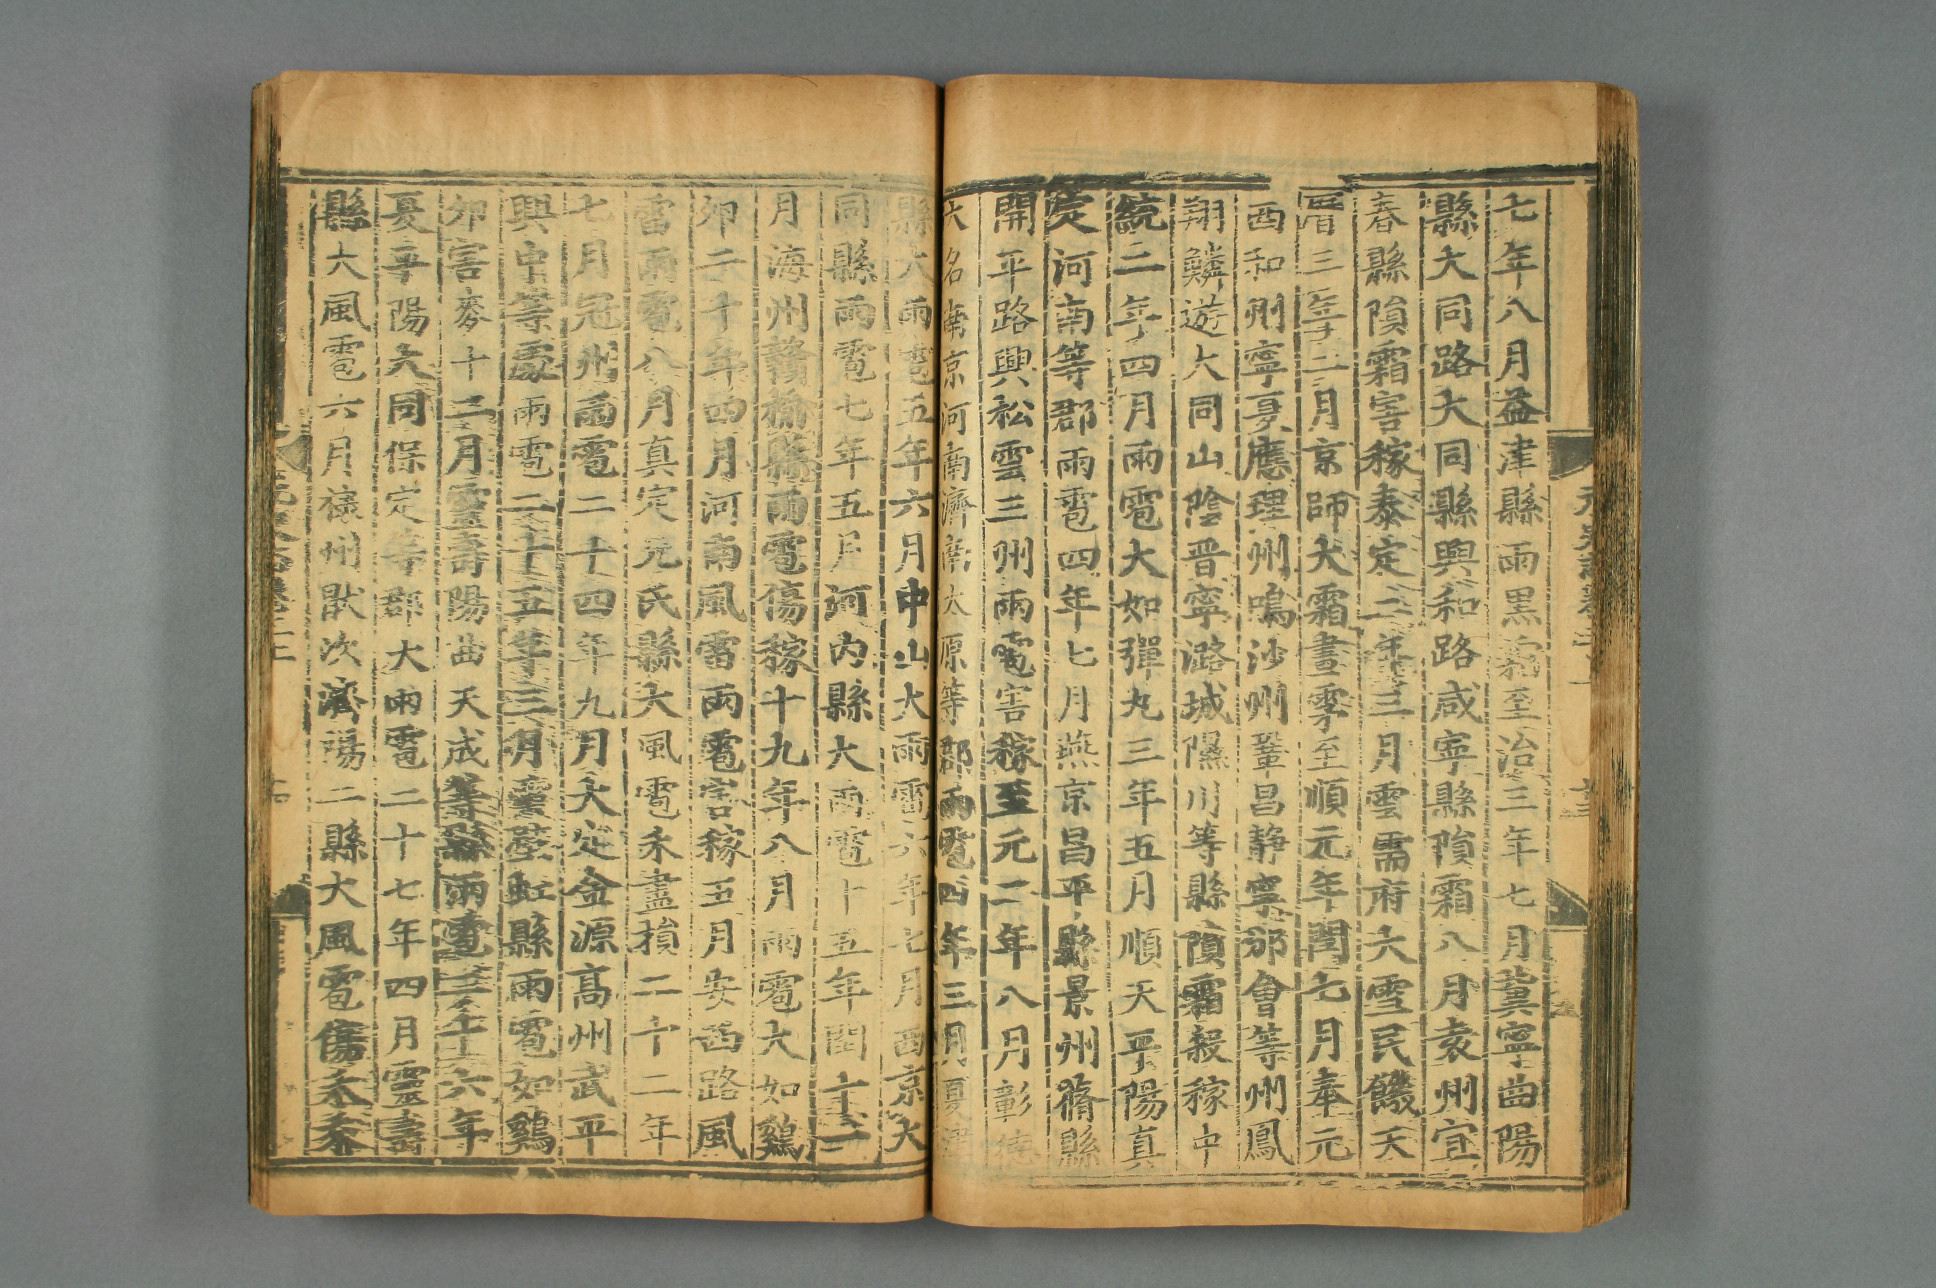 七年八月益津縣雨黑霜至治三年七月冀寧曲陽
縣大同路大同縣興和路咸寧縣隕霜八月袁州宜
春縣隕霜害稼泰定二年三月雲需府大雪民饑天
曆三年二月京師大霜晝雺至順元年閏七月奉元
西和州寧夏應理州鳴沙州鞏昌静寧邠會等州鳳
翔麟遊大同山陰晋寧潞城隰川等縣隕霜殺稼中
統二年四月雨雹大如彈丸三年五月順天平陽真
定河南等郡雨雹四年七月燕京昌平縣景州蓨縣
開平路興松雲三州雨雹害稼至元二年八月彰德
大名南京河南濟南太原等郡雨雹四年三月夏津
縣大雨雹五年六月中山大雨雹六年七月西京大
同縣雨雹七年五月河内縣大雨雹十五年閏十一
月海州贛榆縣雨雹傷稼十九年八月雨雹大如鷄
卵二十年四月河南風雷雨雹害稼五月安西路風
雷雨雹八月真定元氏縣大風雹禾盡損二十二年
七月冠州雨雹二十四年九月大定金源高州武平
興中等處雨雹二十五年三月靈璧虹縣雨雹如鷄
卵害麥十二月靈壽陽曲天成等縣雨雹二十六年
夏平陽大同保定等郡大雨雹二十七年四月靈壽
縣大風雹六月棣州厭次濟陽二縣大風雹傷禾黍